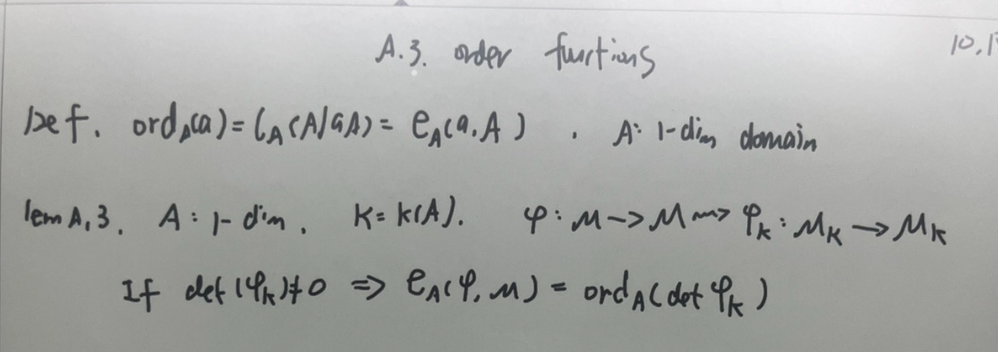 A.3. order functions
10.1
Def. ord_A(a) = l_A(A/aA) = e_A(a, A). A: 1-dim domain
lem A.3. A: 1-dim. K = k(A). φ: M → M ⇝ φ_K: M_K → M_K
If det(φ_K) ≠ 0 ⇒ e_A(φ, M) = ord_A(det φ_K)